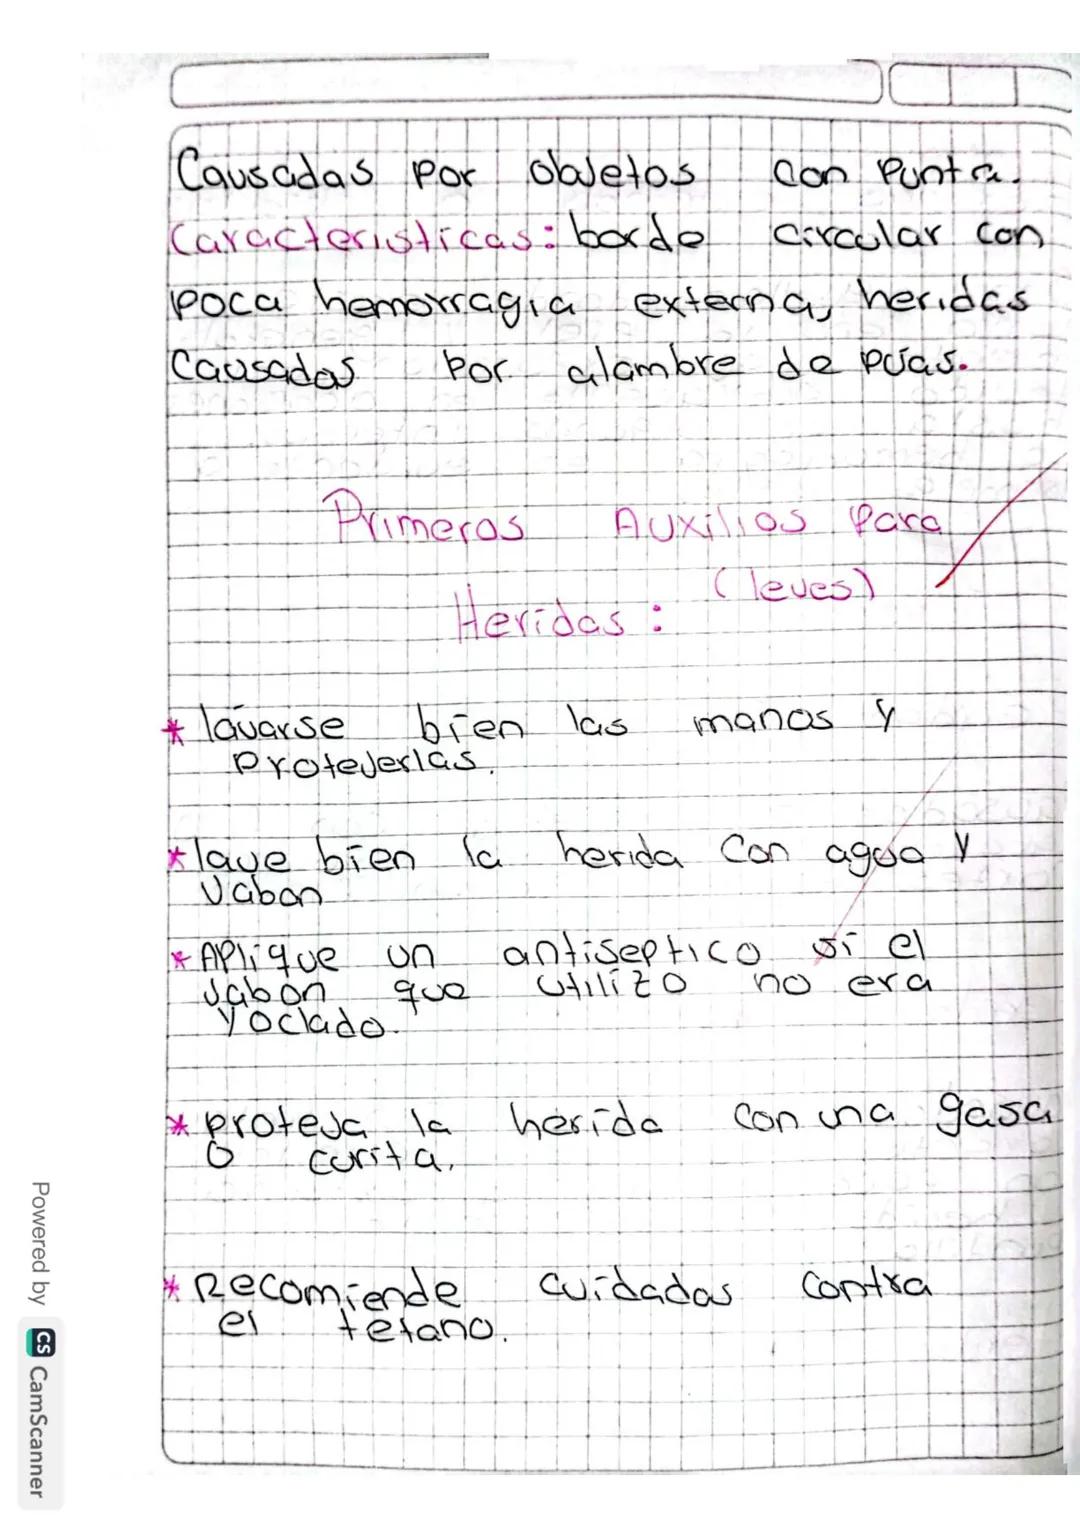 Causadas por objetos con punta.
Caracteristicas: borde circular con
poca hemorragia externa, heridas
Causadas por alambre de púas.
Primeros Auxilios para
(leves)
Heridas:
* lavarse bien las manos y
protejerlas.
* lave bien la herida con agua y
Jabon
* Aplique un antiseptico si el
Jabon que utilizo no era
Yoclado.
* proteja la herida con una gasa
o curita.
* Recomiende cuidados contra
el tetano.
Powered by CS CamScanner